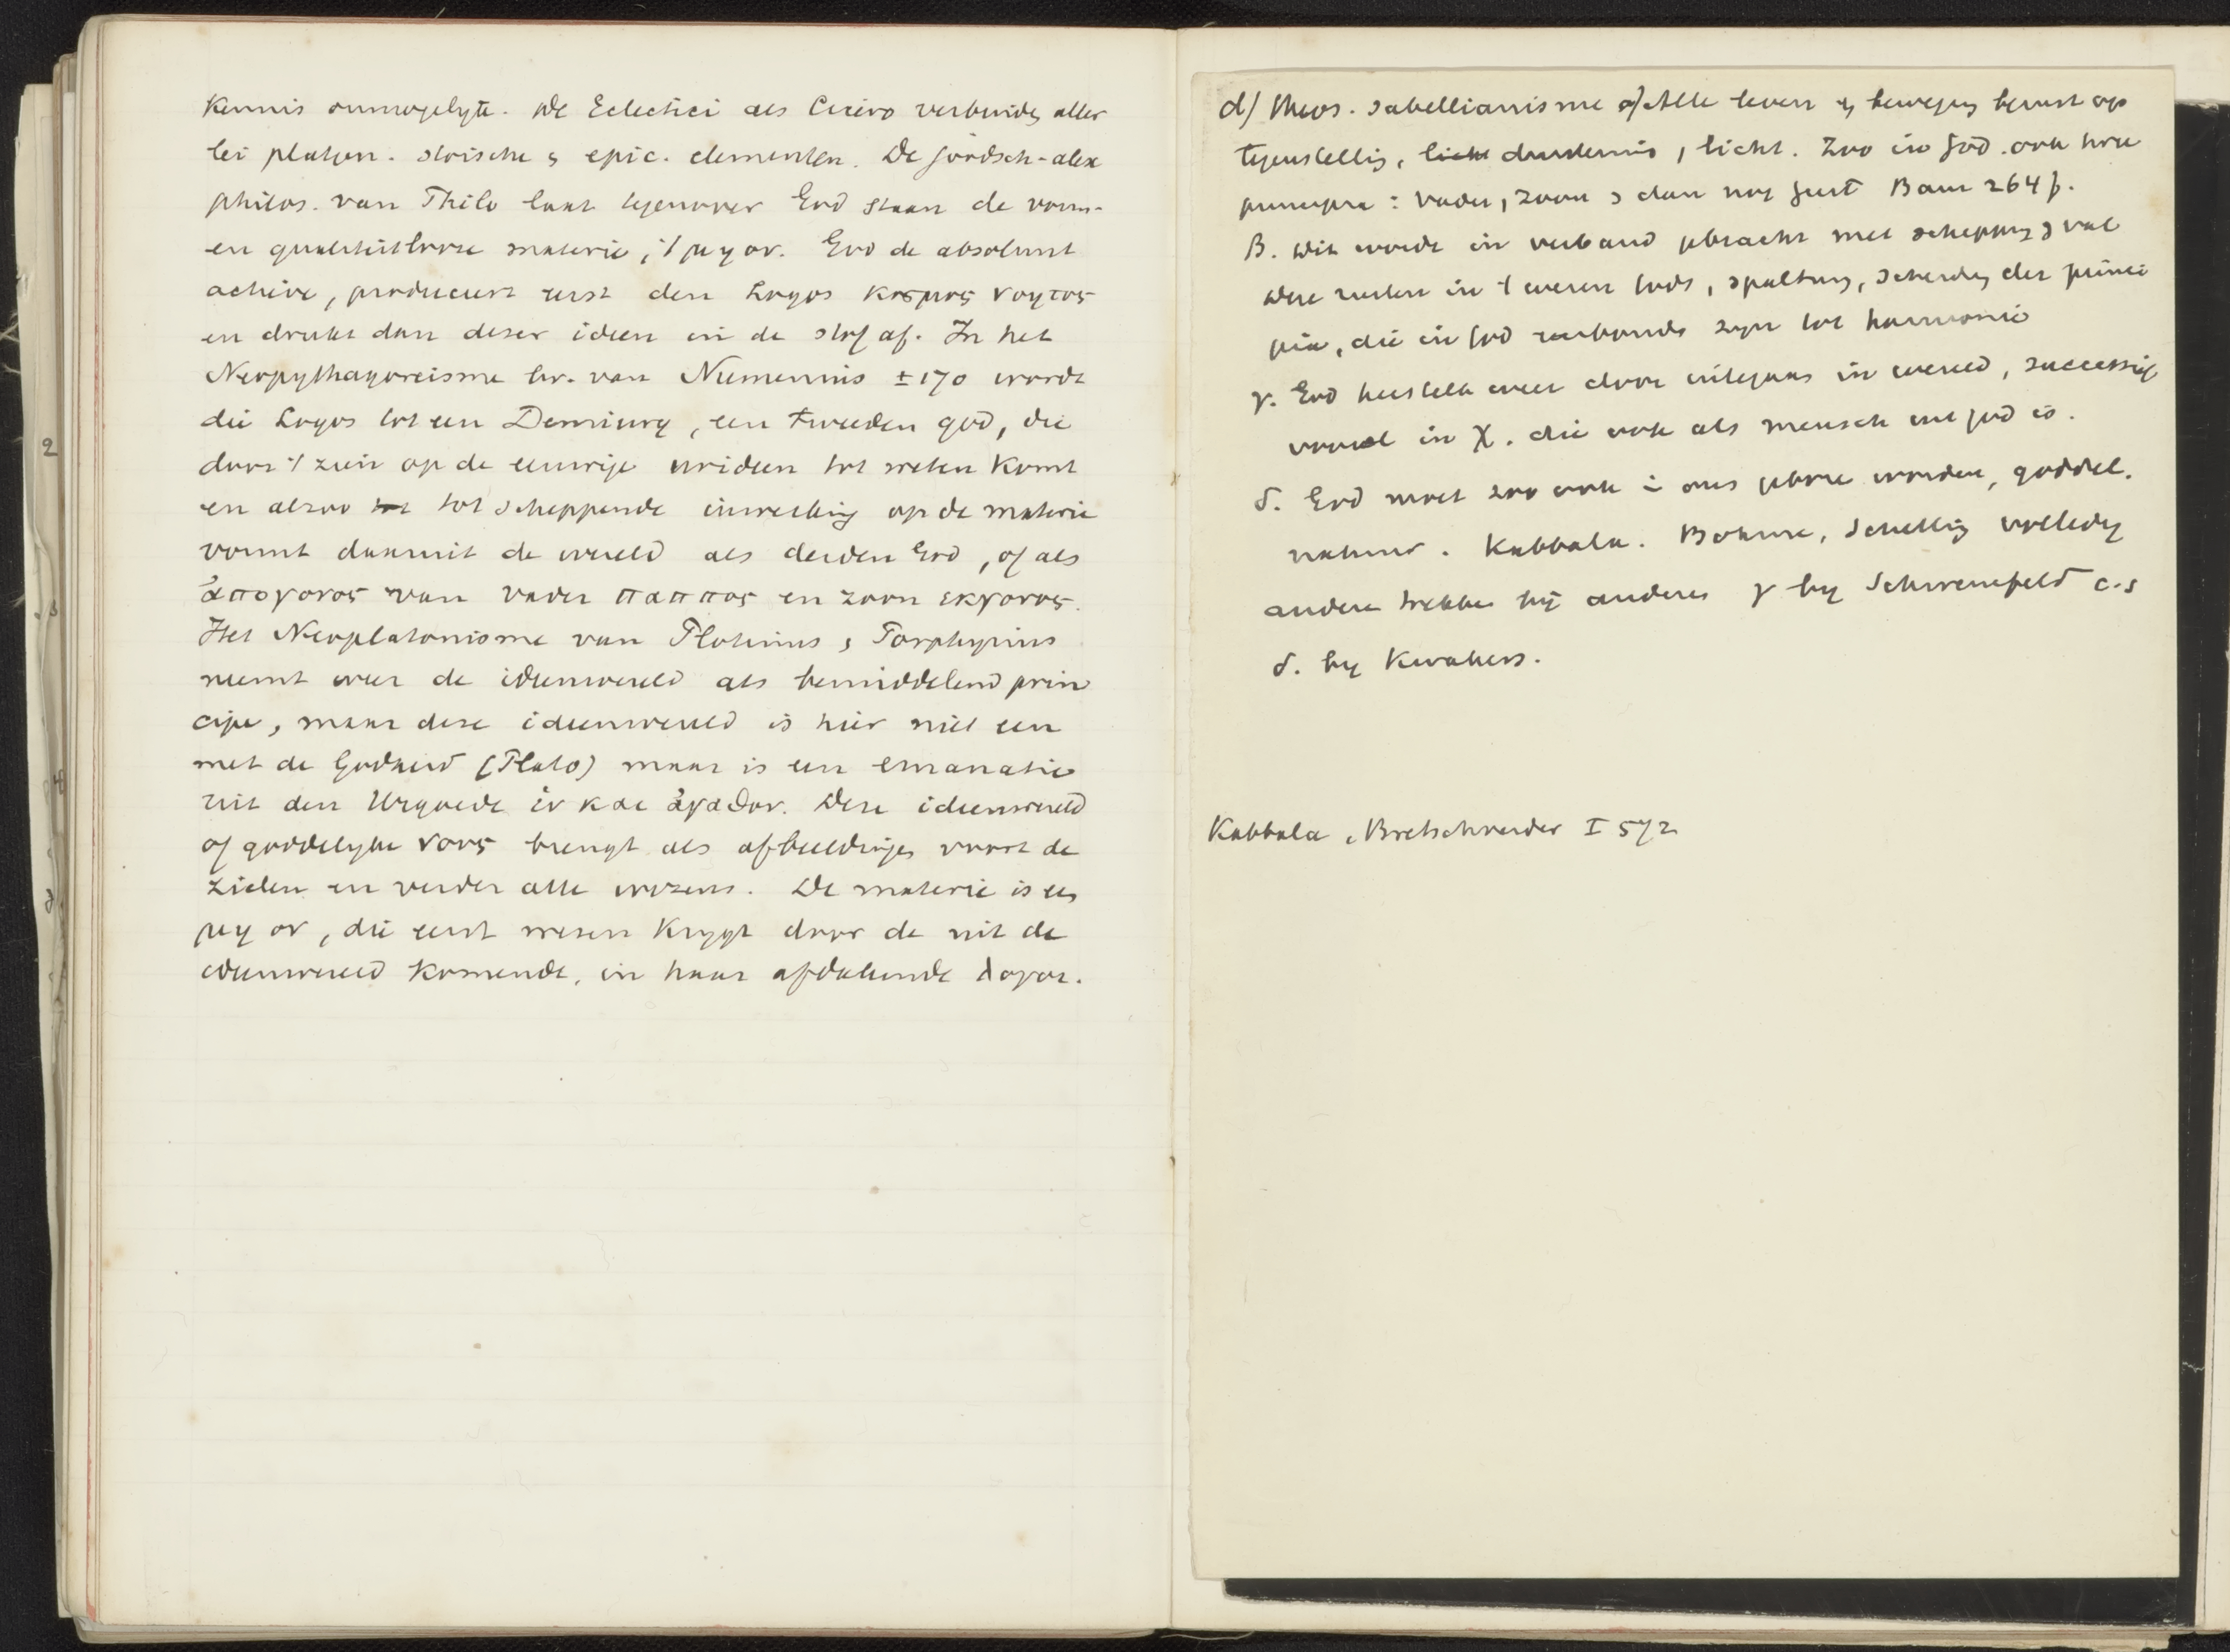 Kennis onmogelijk. De Eclectici als Cicero verbinden aller
lei platon. stoische & epic. elementen. De joodsch-alex
philos. van Philo laat tegenover God staan de vorm-
en qualiteitlooze materie, 't μη ον. God de absoluut
actieve, produceert eerst den Logos κοσμος νοητος
en drukt dan dezer ideen in de stof af. In het
Neopythagoreisme bv. van Numenius ± 170 wordt
die Logos tot een Demiurg, een tweeden god, die
door 't zien op de eeuwige ideen tot weten komt
en alzoo tot scheppende inwerking op de materie
vormt daaruit de wereld als derden God, of als
ἀπογονος van vader παππος en zoon εκγονος.
Het Neoplatonisme van Plotinus & Porphyrius
neemt weer de ideenwereld als bemiddelend prin
cipe, maar deze ideenwereld is hier niet een
met de Godheid (Plato) maar is een emanatie
uit den Urgoede ἑν και ἀγαθον. Deze ideenwereld
of goddelijke νους brengt als afbeeldingen voort de
zielen en verder alle wezens. De materie is een
μη ον, die eerst wezen krijgt door de uit de
ideenwereld komende, in haar afdalende λογοι.
d) theos. sabellianisme α) Alle leven & beweging berust op
tegenstelling, licht duisternis, licht. Zoo in God ook twee
principia: vader, zoon & dan nog geest Baur 264 f.
β. Dit wordt in verband gebracht met schepping & val
Deze rusten in 't wezen Gods, spalting, scheiding der princi
pia, die in God verbonden zijn tot harmonie
γ. God herstelt weer door ingaan in wereld, successief
vooral in X. die ook als mensch uit God is.
δ. God moet zoo ook in ons geboren worden, goddel.
natuur. Kabbala. Bohme, Schelling volledig
andere trekken bij anderen γ by Schwenkfeld c.s
δ. by Kwakers.
Kabbala, Bretschneider I 572